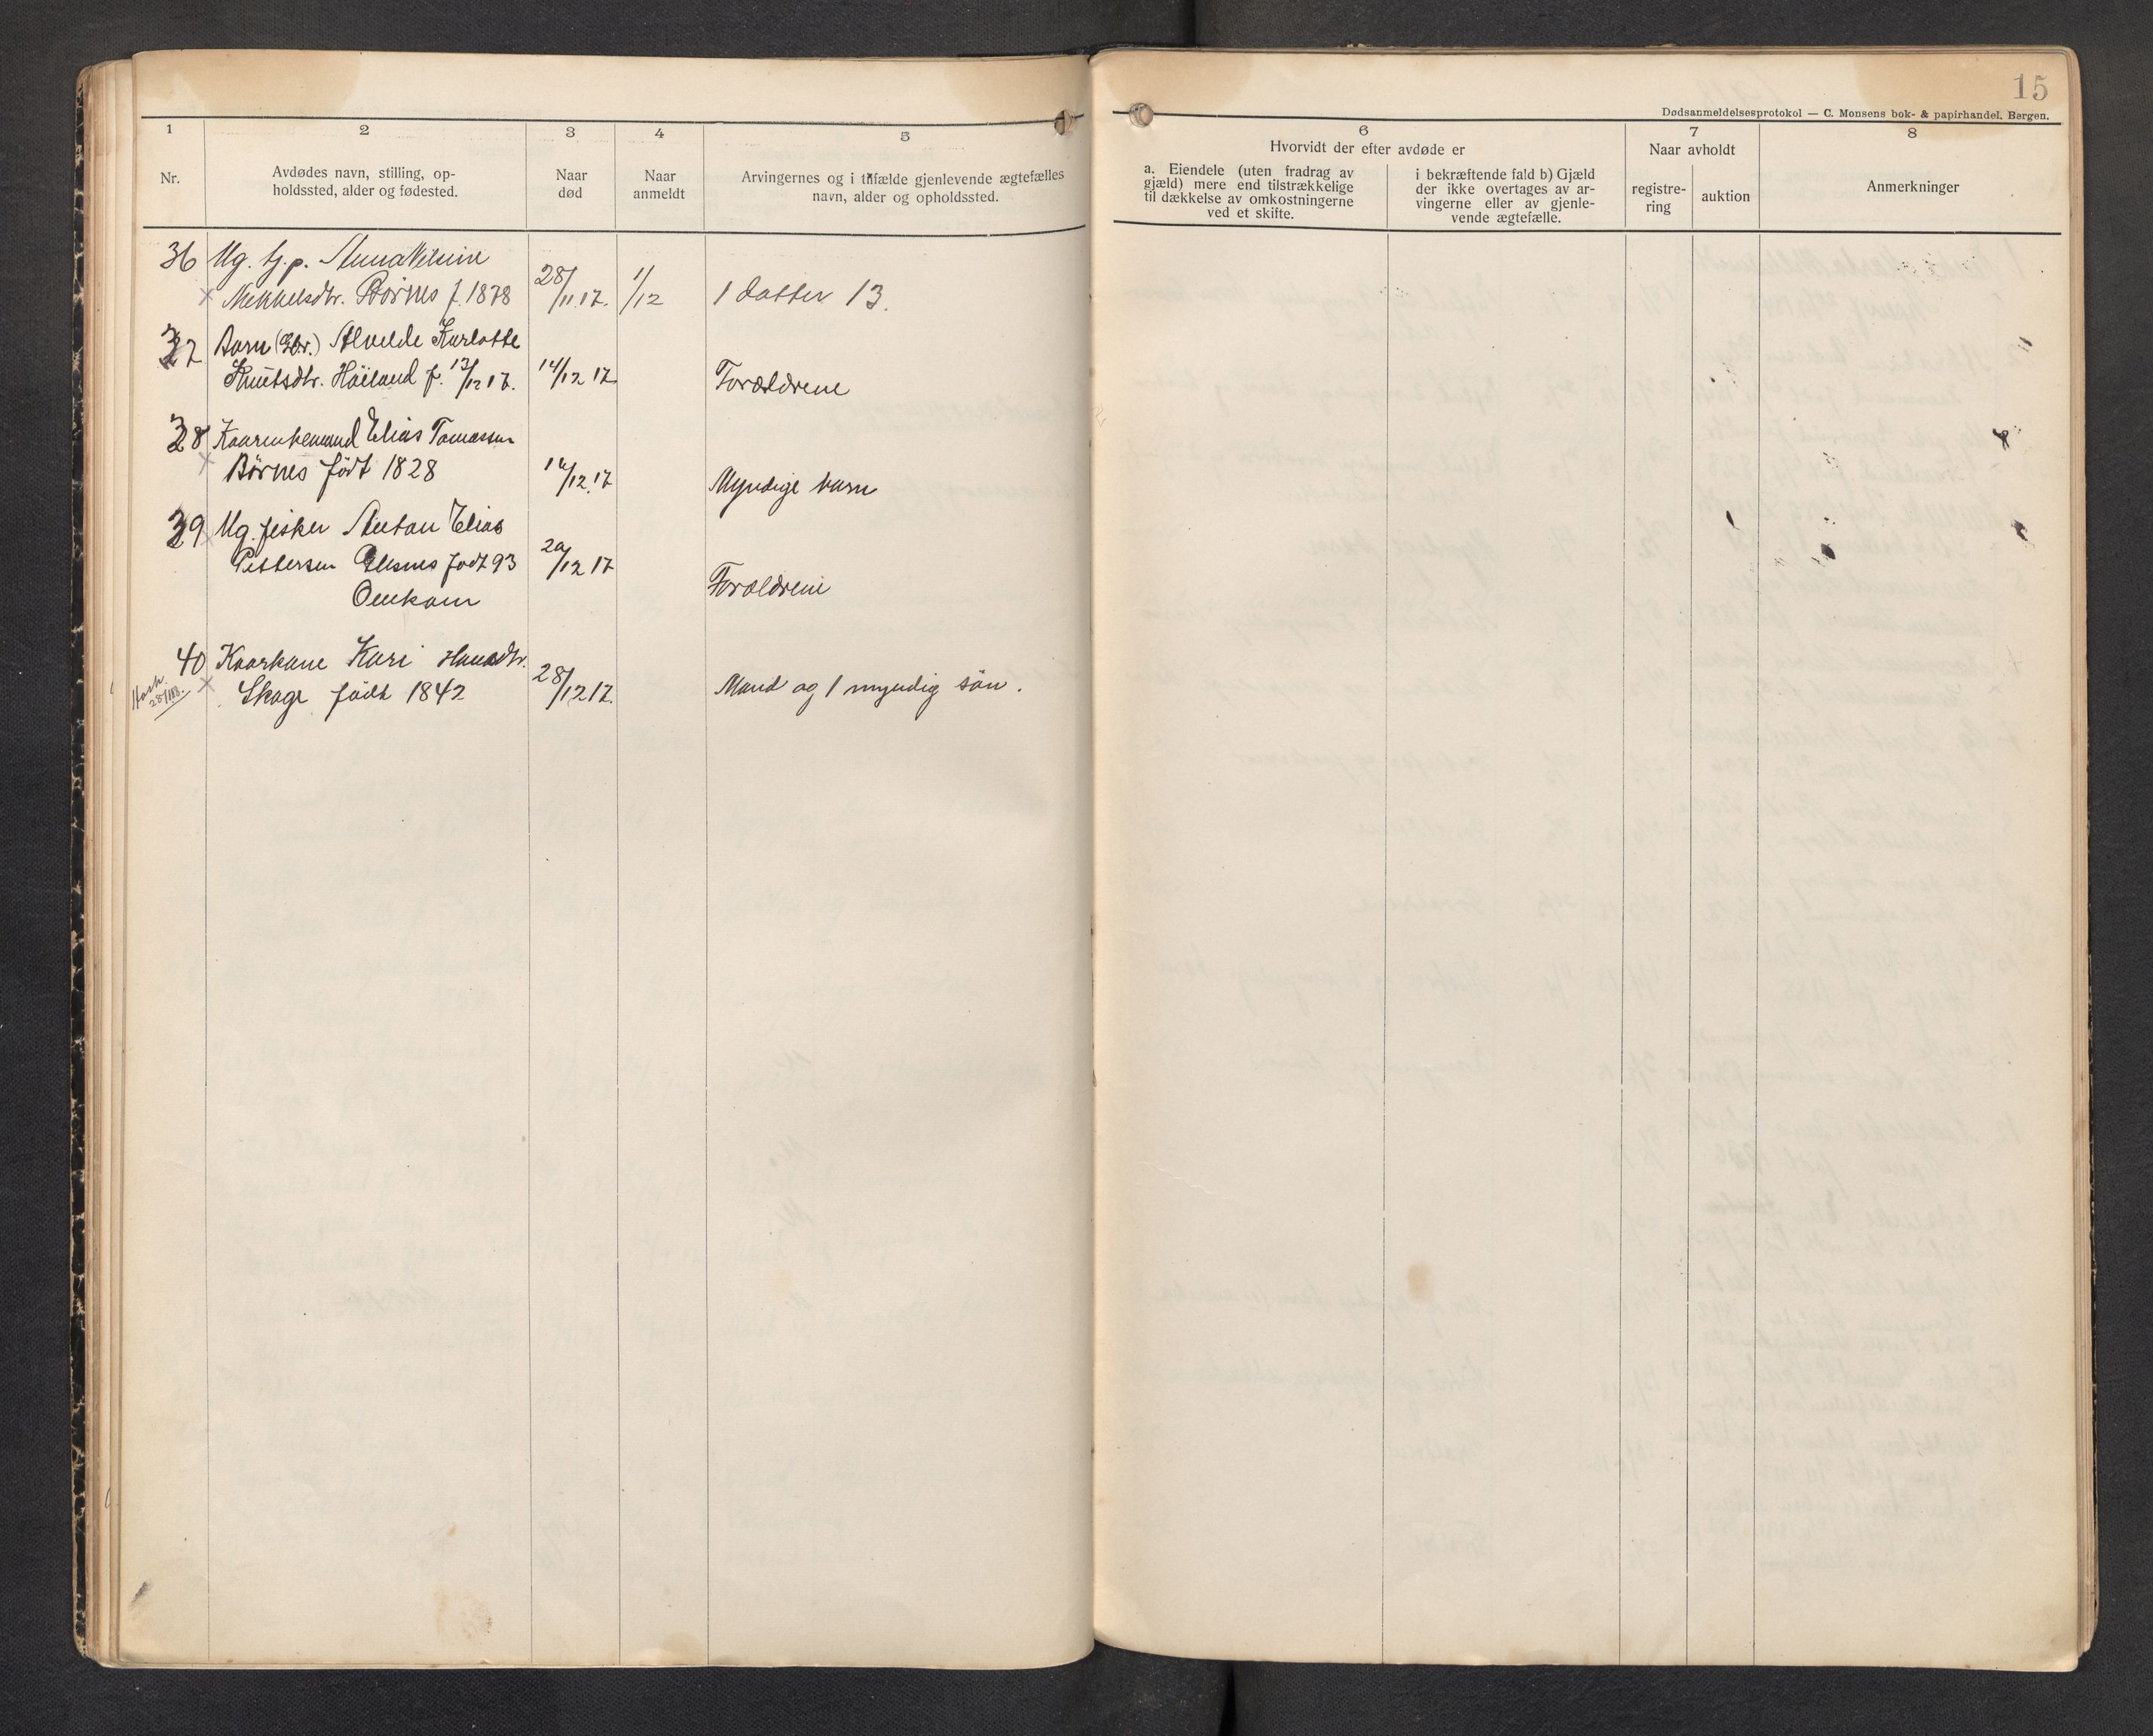 15
Dødsanmeldelsesprotokol — C. Monsens bok- & papirhandel, Bergen.
1
2
3
4
5
Nr.
Avdødes navn, stilling, op-
holdssted, alder og fødested.
Naar
død
Naar
anmeldt
Arvingernes og i tilfælde gjenlevende ægtefælles
navn, alder og opholdssted.
6
Hvorvidt der efter avdøde er
a. Eiendele (uten fradrag av
gjæld) mere end tilstrækkelige
til dækkelse av omkostningerne
ved et skifte.
i bekræftende fald b) Gjæld
der ikke overtages av ar-
vingerne eller av gjenle-
vende ægtefælle.
7
Naar avholdt
registre-
ring
auktion
8
Anmerkninger
36 Ug. tj.p. Anna
Mekkelsdtr. Børnes f. 1878 28/11 17. 1/12 1 datter 13.
37 Barn Alvilde Karlotte
Knutsdtr. Høiland f. 13/12 17. 14/12 17 Forældrene
38 Kaarenkemand Elias Tomassen
Børnes født 1828 /12 17 Myndige barn
39 Ug. fisker Anton Elias
Pettersen født 93 20/12 17
Omkom Forældrene
40 Kaarkone Kari Hansdtr.
Skage født 1842 28/12 17. Mand og 1 myndig søn.